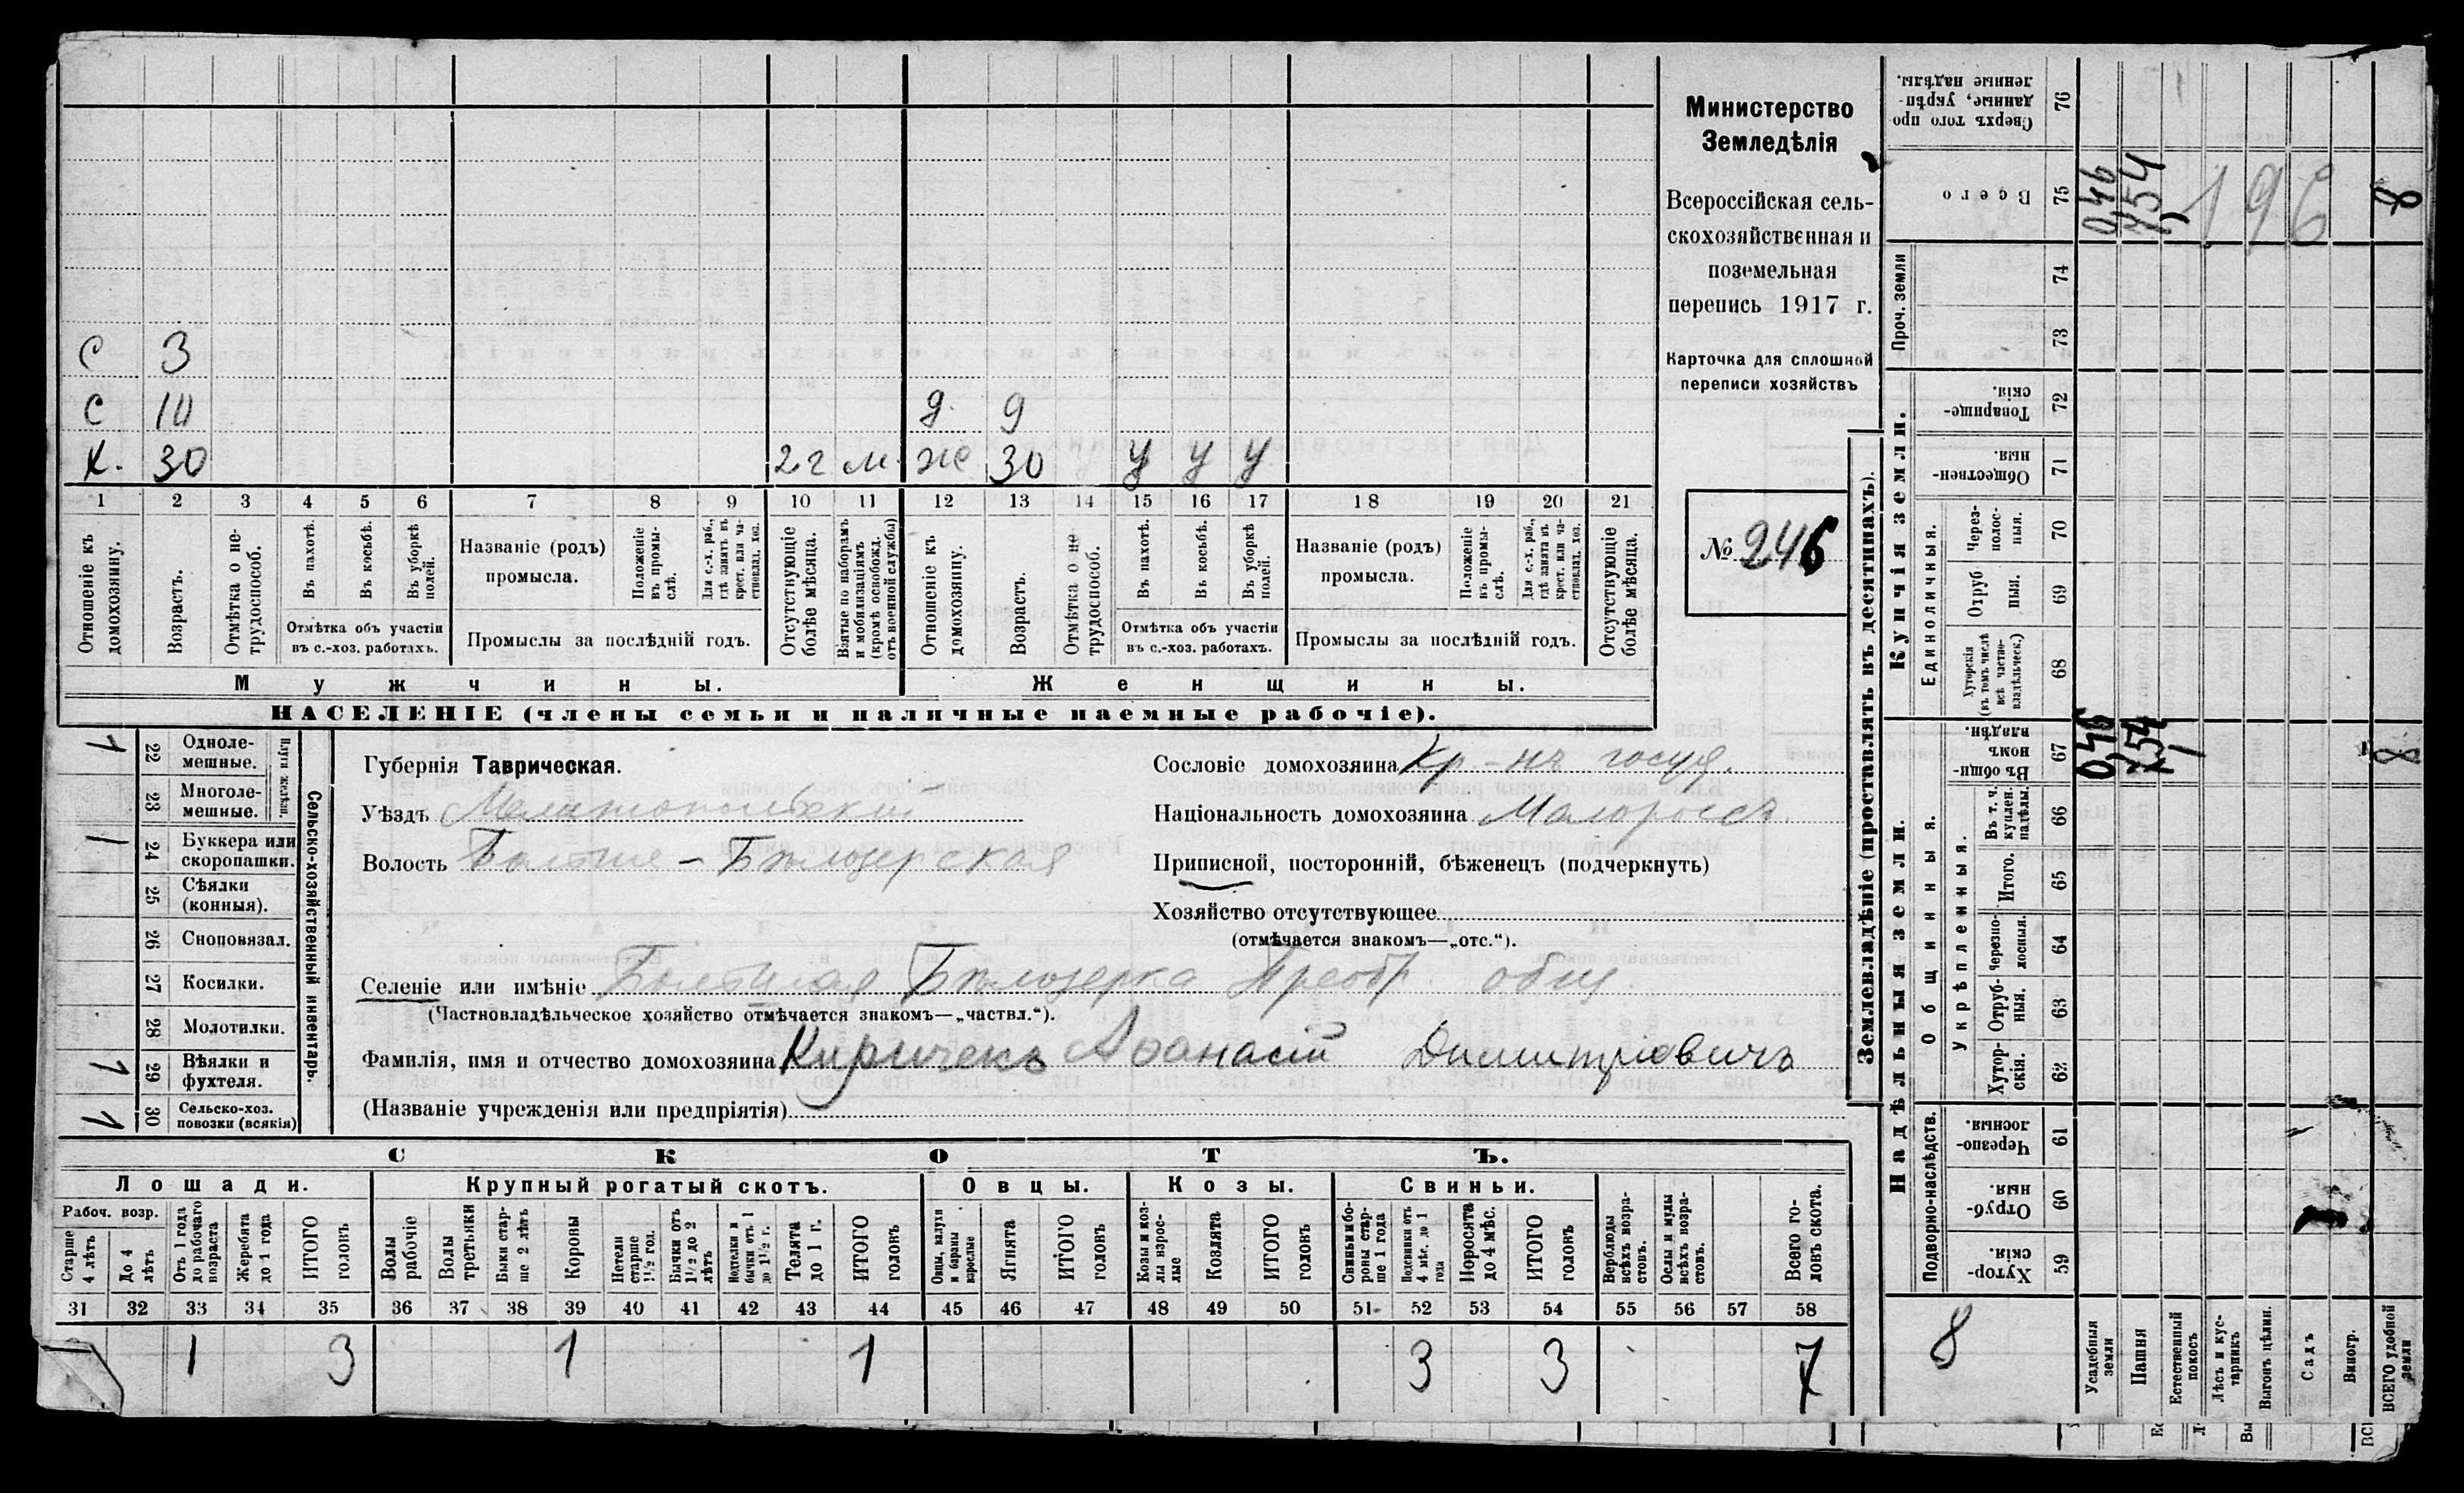 С 3
С 10 д. 9
Х. 30 2 г м. ж 30 у у у
1 2 3 4 5 6 7 8 9 10 11 12 13 14 15 16 17 18 19 20 21
Отношеніе къ домохозяину.
Возрастъ.
Отмѣтка о не-трудоспособ.
Въ пахотѣ.
Въ косьбѣ.
Въ уборкѣ полей.
Отмѣтка объ участіи
въ с.-хоз. работахъ.
Названіе (родъ)
промысла.
Положеніе въ промы-слѣ.
Для с.-х. раб., гдѣ занятъ въ крест. или ча-стновлад. хоз.
Промыслы за послѣдній годъ.
Отсутствующіе болѣе мѣсяца.
Взятые по наборамъ и мобилизаціямъ (кромѣ освобожд. отъ военной службы)
Отношеніе къ домохозяину.
Возрастъ.
Отмѣтка о не трудоспособ.
Въ пахотѣ.
Въ косьбѣ.
Въ уборкѣ полей.
Отмѣтка объ участіи
въ с.-хоз. работахъ.
Названіе (родъ)
промысла.
Положеніе въ промы-слѣ.
Для с.-х. раб., гдѣ занята въ крест. или ча-стновлад. хоз.
Промыслы за послѣдній годъ.
Отсутствующіе болѣе мѣсяца.
Мужчины.
Женщины.
НАСЕЛЕНІЕ (члены семьи и наличные наемные рабочіе).
Министерство
Земледѣлія
Всероссійская сель-
скохозяйственная и
поземельная
перепись 1917 г.
Карточка для сплошной
переписи хозяйствъ
№ 246
1 22 Одноле-мешные.
23 Многоле-мешные.
Плуги желѣзн.
1 24 Буккера или скоропашки.
25 Сѣялки (конныя).
26 Сноповязал.
27 Косилки.
28 Молотилки.
1 29 Вѣялки и фухтеля.
1 30 Сельско-хоз. повозки (всякія)
Сельско-хозяйственный инвентарь.
Губернія Таврическая.
Уѣздъ Мелитопольскій
Волость Больше-Бѣлозерская
Сословіе домохозяина Кр-нъ госуд.
Національность домохозяина Малороссъ.
Приписной, посторонній, бѣженецъ (подчеркнуть)
Хозяйство отсутствующее
(отмѣчается знакомъ—„отс.“).
Селеніе или имѣніе Большая Бѣлозерка Преобр. общ.
(Частновладѣльческое хозяйство отмѣчается знакомъ—„частвл.“).
Фамилія, имя и отчество домохозяина Киричекъ Афанасій Димитріовичъ
(Названіе учрежденія или предпріятія)
СКОТЪ.
Лошади. Крупный рогатый скотъ. Овцы. Козы. Свиньи.
Рабоч. возр.
Старше 4 лѣтъ
До 4 лѣтъ
Отъ 1 года до рабочаго возраста
Жеребята до 1 года
ИТОГО головъ
Волы рабочіе
Волы третьяки
Быки стар-ше 2 лѣтъ
Коровы
Нетели старше 1½ год.
Бычки отъ 1½ до 2 лѣтъ
Телки и бычки отъ 1 до 1½ г.
Телята до 1 г.
ИТОГО головъ
Овцы, валухи и бараны взрослые
Ягнята
ИТОГО головъ
Козы и коз-лы взрос-лые
Козлята
ИТОГО головъ
Свиньи и бо-ровы стар-ше 1 года
Подсвинки отъ 4 мѣс. до 1 года
Поросята до 4 мѣс.
ИТОГО головъ
Верблюды всѣхъ возра-стовъ.
Ослы и мулы всѣхъ возра-стовъ.
Всего го-ловъ скота.
31 32 33 34 35 36 37 38 39 40 41 42 43 44 45 46 47 48 49 50 51 52 53 54 55 56 57 58
1 3 1 1 3 3 7
Землевладѣніе (проставлять въ десятинахъ).
Надѣльныя земли.
Купчія земли.
Проч. земли
Подворно-наслѣдств.
Общинныя.
Укрѣпленныя.
Единоличныя.
Сверхъ того про данные, укрѣп-ленные надѣлы. 76
Всего 75
74
73
Товарище-скія. 72
Обществен-ныя. 71
Через-полос-ныя. 70
Отруб ныя. 69
Хуторскія (въ томъ числѣ всѣ частно-владѣльческ.) 68
Въ общи-номъ владѣн. 67
Въ т. ч. куплен. надѣлы. 66
Итого. 65
Черезпо-лосныя. 64
Отруб-ныя. 63
Хутор-скія. 62
Черезпо-лосныя. 61
Отруб-ныя. 60
Хутор-скія. 59
0,46 7,54 196 8
0,46 7,54 8
8
Усадебныя земли
Пашня
Естественный покосъ
Лѣсъ и кус-тарникъ
Выгонъ цѣлин.
Садъ
Виногр.
ВСЕГО удобной земли